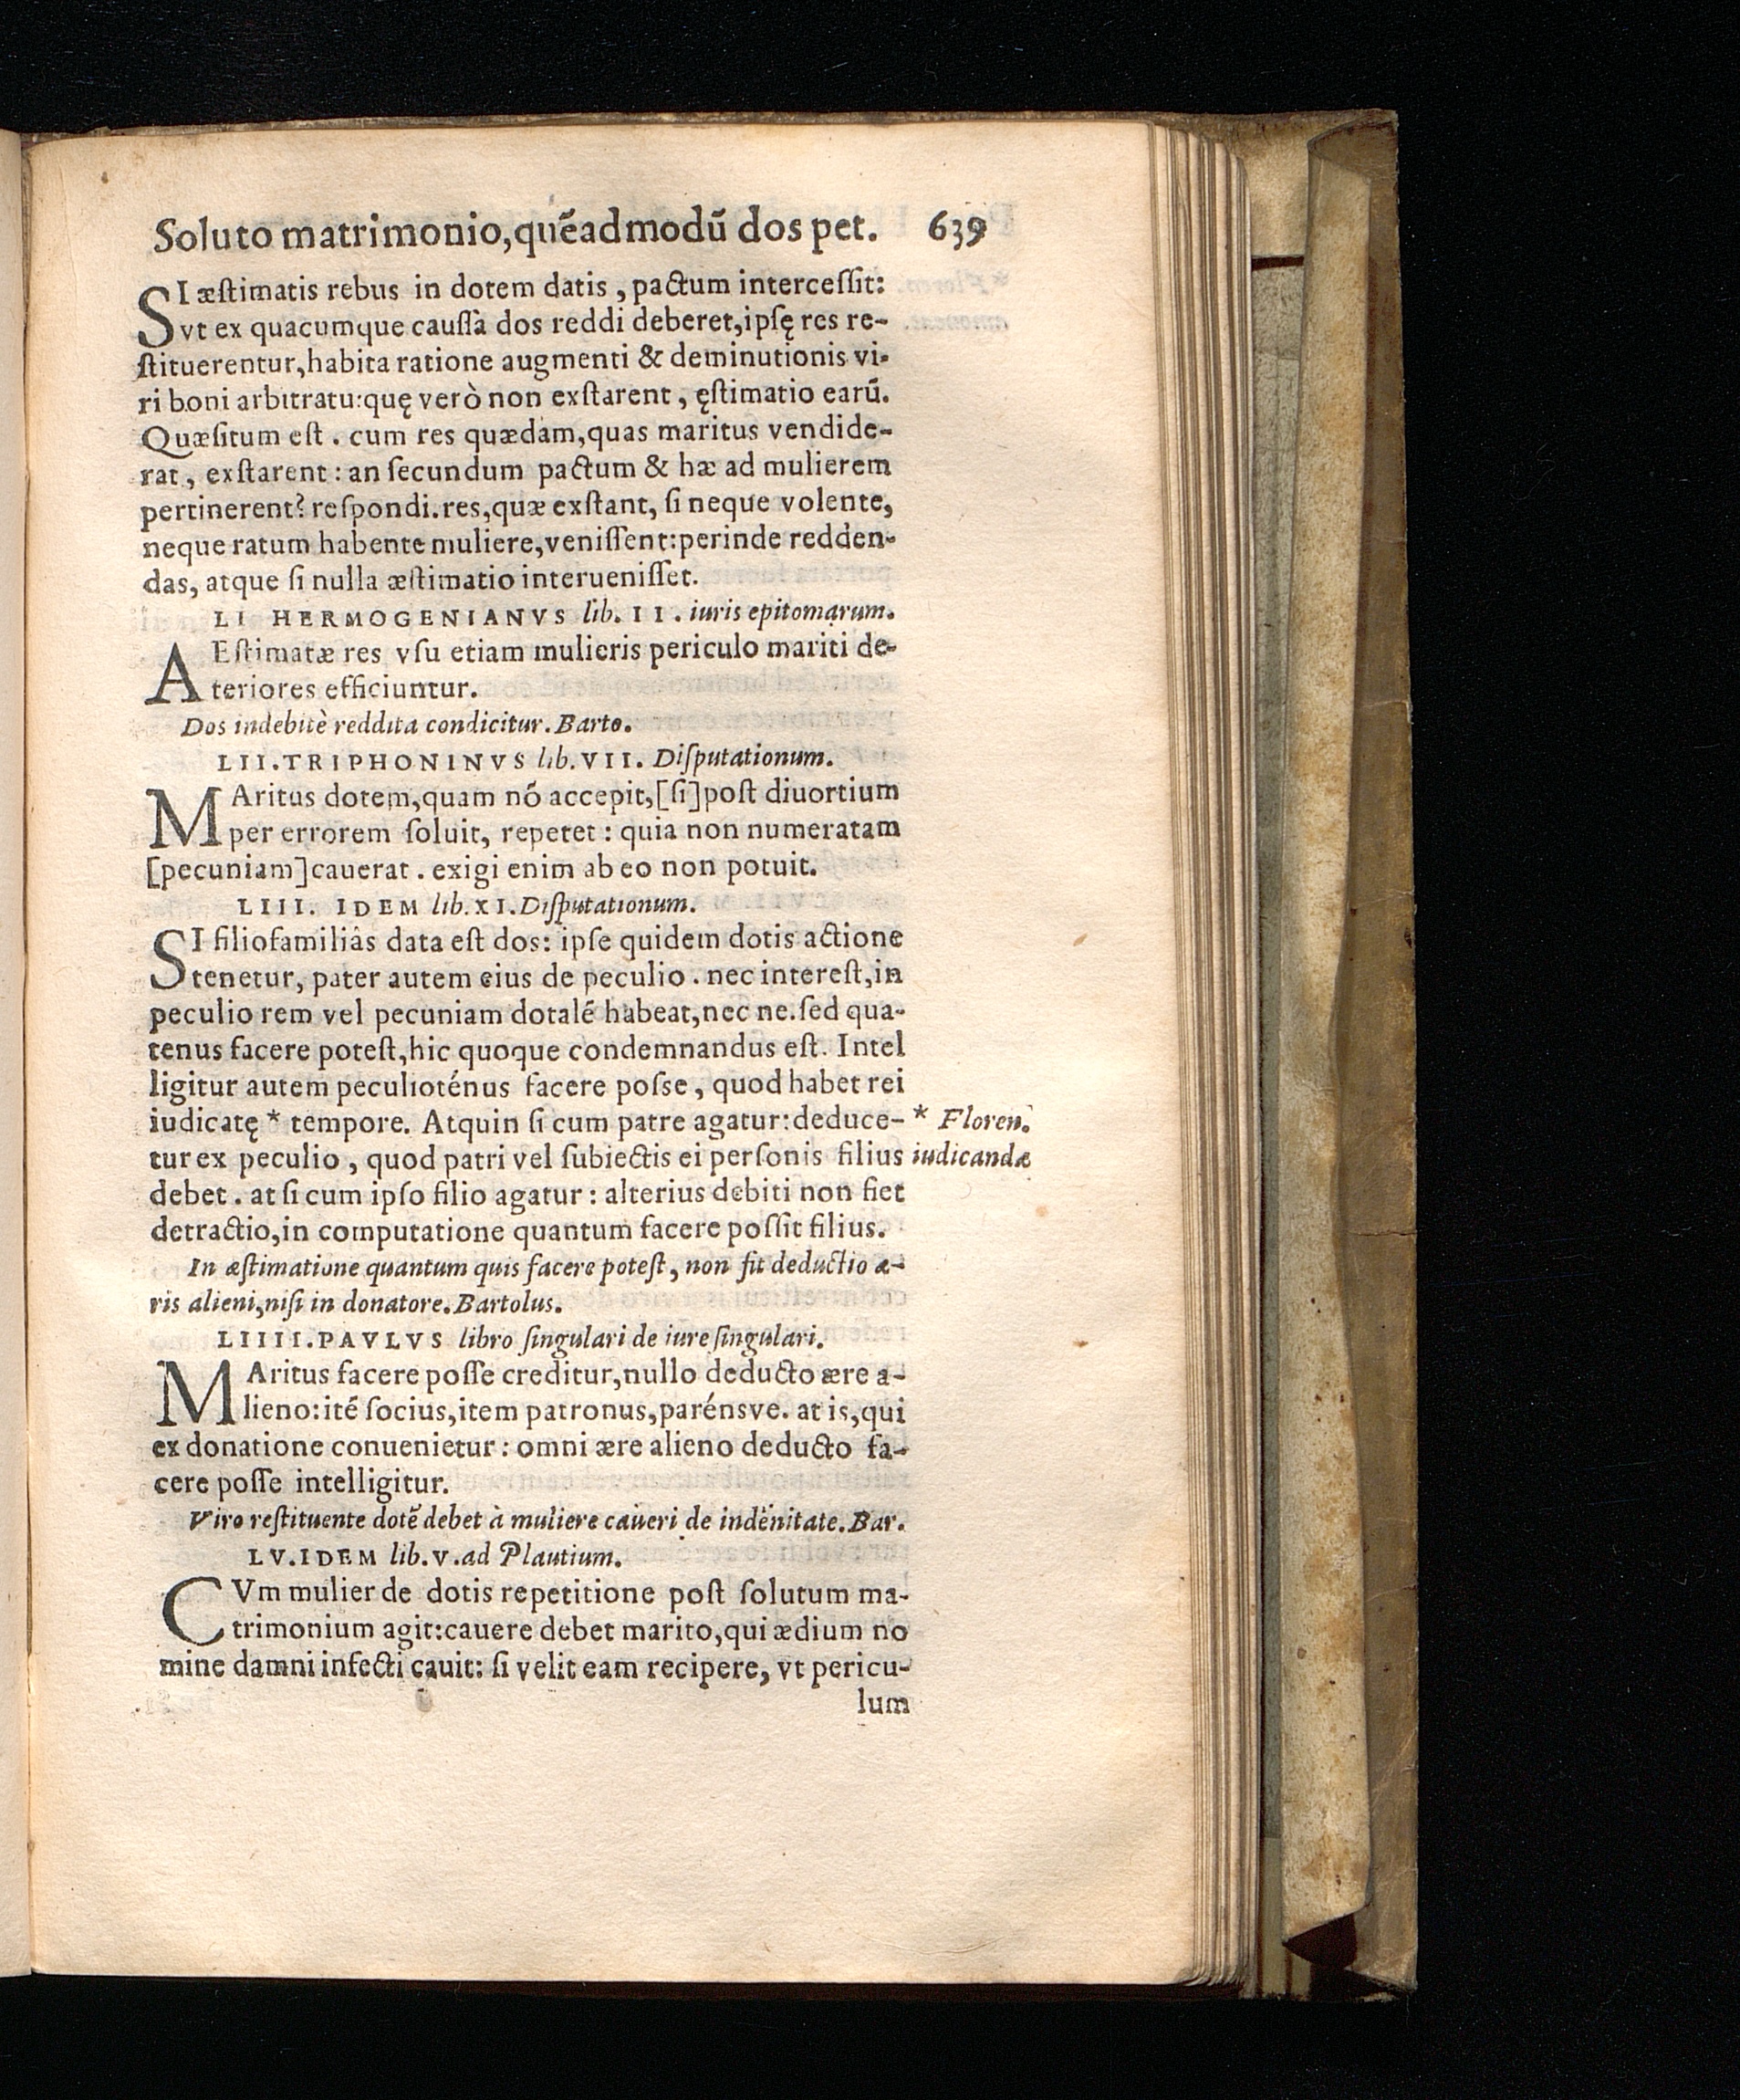 Soluto matrimonio, quẽadmodũ dos pet. 639
SI æstimatis rebus in dotem datis, pactum intercessit:
vt ex quacumque caussa dos reddi deberet, ipsę res re-
stituerentur, habita ratione augmenti & deminutionis vi-
ri boni arbitratu: quę verò non exstarent, ęstimatio earũ.
Quæsitum est. cum res quædam, quas maritus vendide-
rat, exstarent: an secundum pactum & hæ ad mulierem
pertinerent? respondi. res, quæ exstant, si neque volente,
neque ratum habente muliere, venissent: perinde redden-
das, atque si nulla æstimatio interuenisset.
LI HERMOGENIANVS lib. II. iuris epitomarum.
AEstimatæ res vsu etiam mulieris periculo mariti de-
teriores efficiuntur.
Dos indebitè reddita condicitur. Barto.
LII. TRIPHONINVS lib. VII. Disputationum.
MAritus dotem, quam nõ accepit, [si] post diuortium
per errorem soluit, repetet: quia non numeratam
[pecuniam] cauerat. exigi enim ab eo non potuit.
LIII. IDEM lib. XI. Disputationum.
SI filiofamiliâs data est dos: ipse quidem dotis actione
tenetur, pater autem eius de peculio. nec interest, in
peculio rem vel pecuniam dotalẽ habeat, nec ne. sed qua-
tenus facere potest, hic quoque condemnandus est. Intel
ligitur autem peculioténus facere posse, quod habet rei
iudicatę * tempore. Atquin si cum patre agatur: deduce-
tur ex peculio, quod patri vel subiectis ei personis filius
debet. at si cum ipso filio agatur: alterius debiti non fiet
detractio, in computatione quantum facere possit filius.
* Floren.
iudicandæ
In æstimatione quantum quis facere potest, non fit deductio æ-
ris alieni, nisi in donatore. Bartolus.
LIIII. PAVLVS libro singulari de iure singulari.
MAritus facere posse creditur, nullo deducto ære a-
lieno: itẽ socius, item patronus, parénsve. at is, qui
ex donatione conuenietur: omni ære alieno deducto fa-
cere posse intelligitur.
Viro restituente dotẽ debet à muliere caueri de indẽnitate. Bar.
LV. IDEM lib. V. ad Plautium.
CVm mulier de dotis repetitione post solutum ma-
trimonium agit: cauere debet marito, qui ædium no
mine damni infecti cauit: si velit eam recipere, vt pericu-
lum